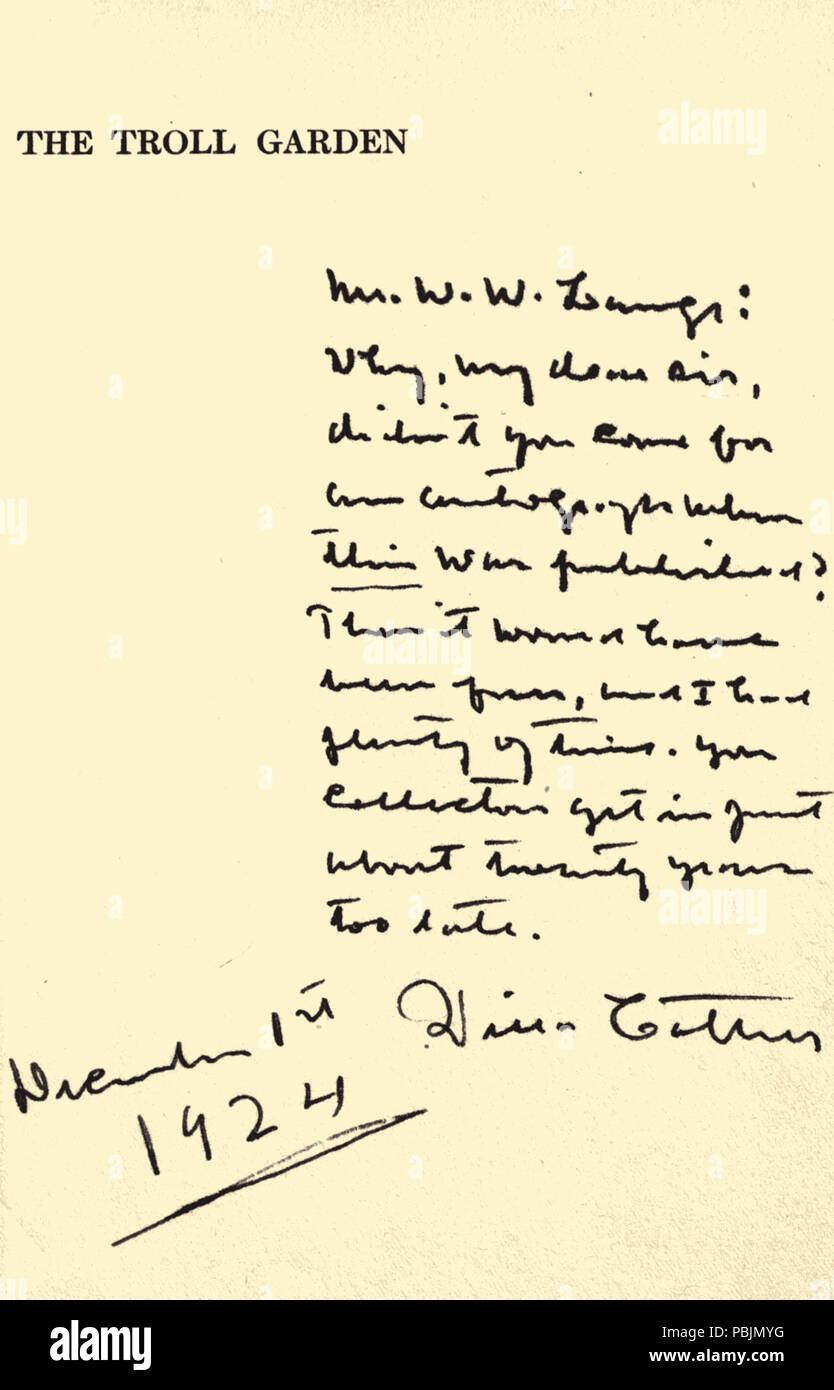 THE TROLL GARDEN
Mr. W. W. Lange:
Why, my dear sir,
didn't you come for
an autograph when
this was published?
Then it would have
been fun, and I had
plenty of time. You
collectors get in just
about twenty years
too late.
Willa Cather
December 1st
1924
alamy
Image ID: PBJMYG
www.alamy.com